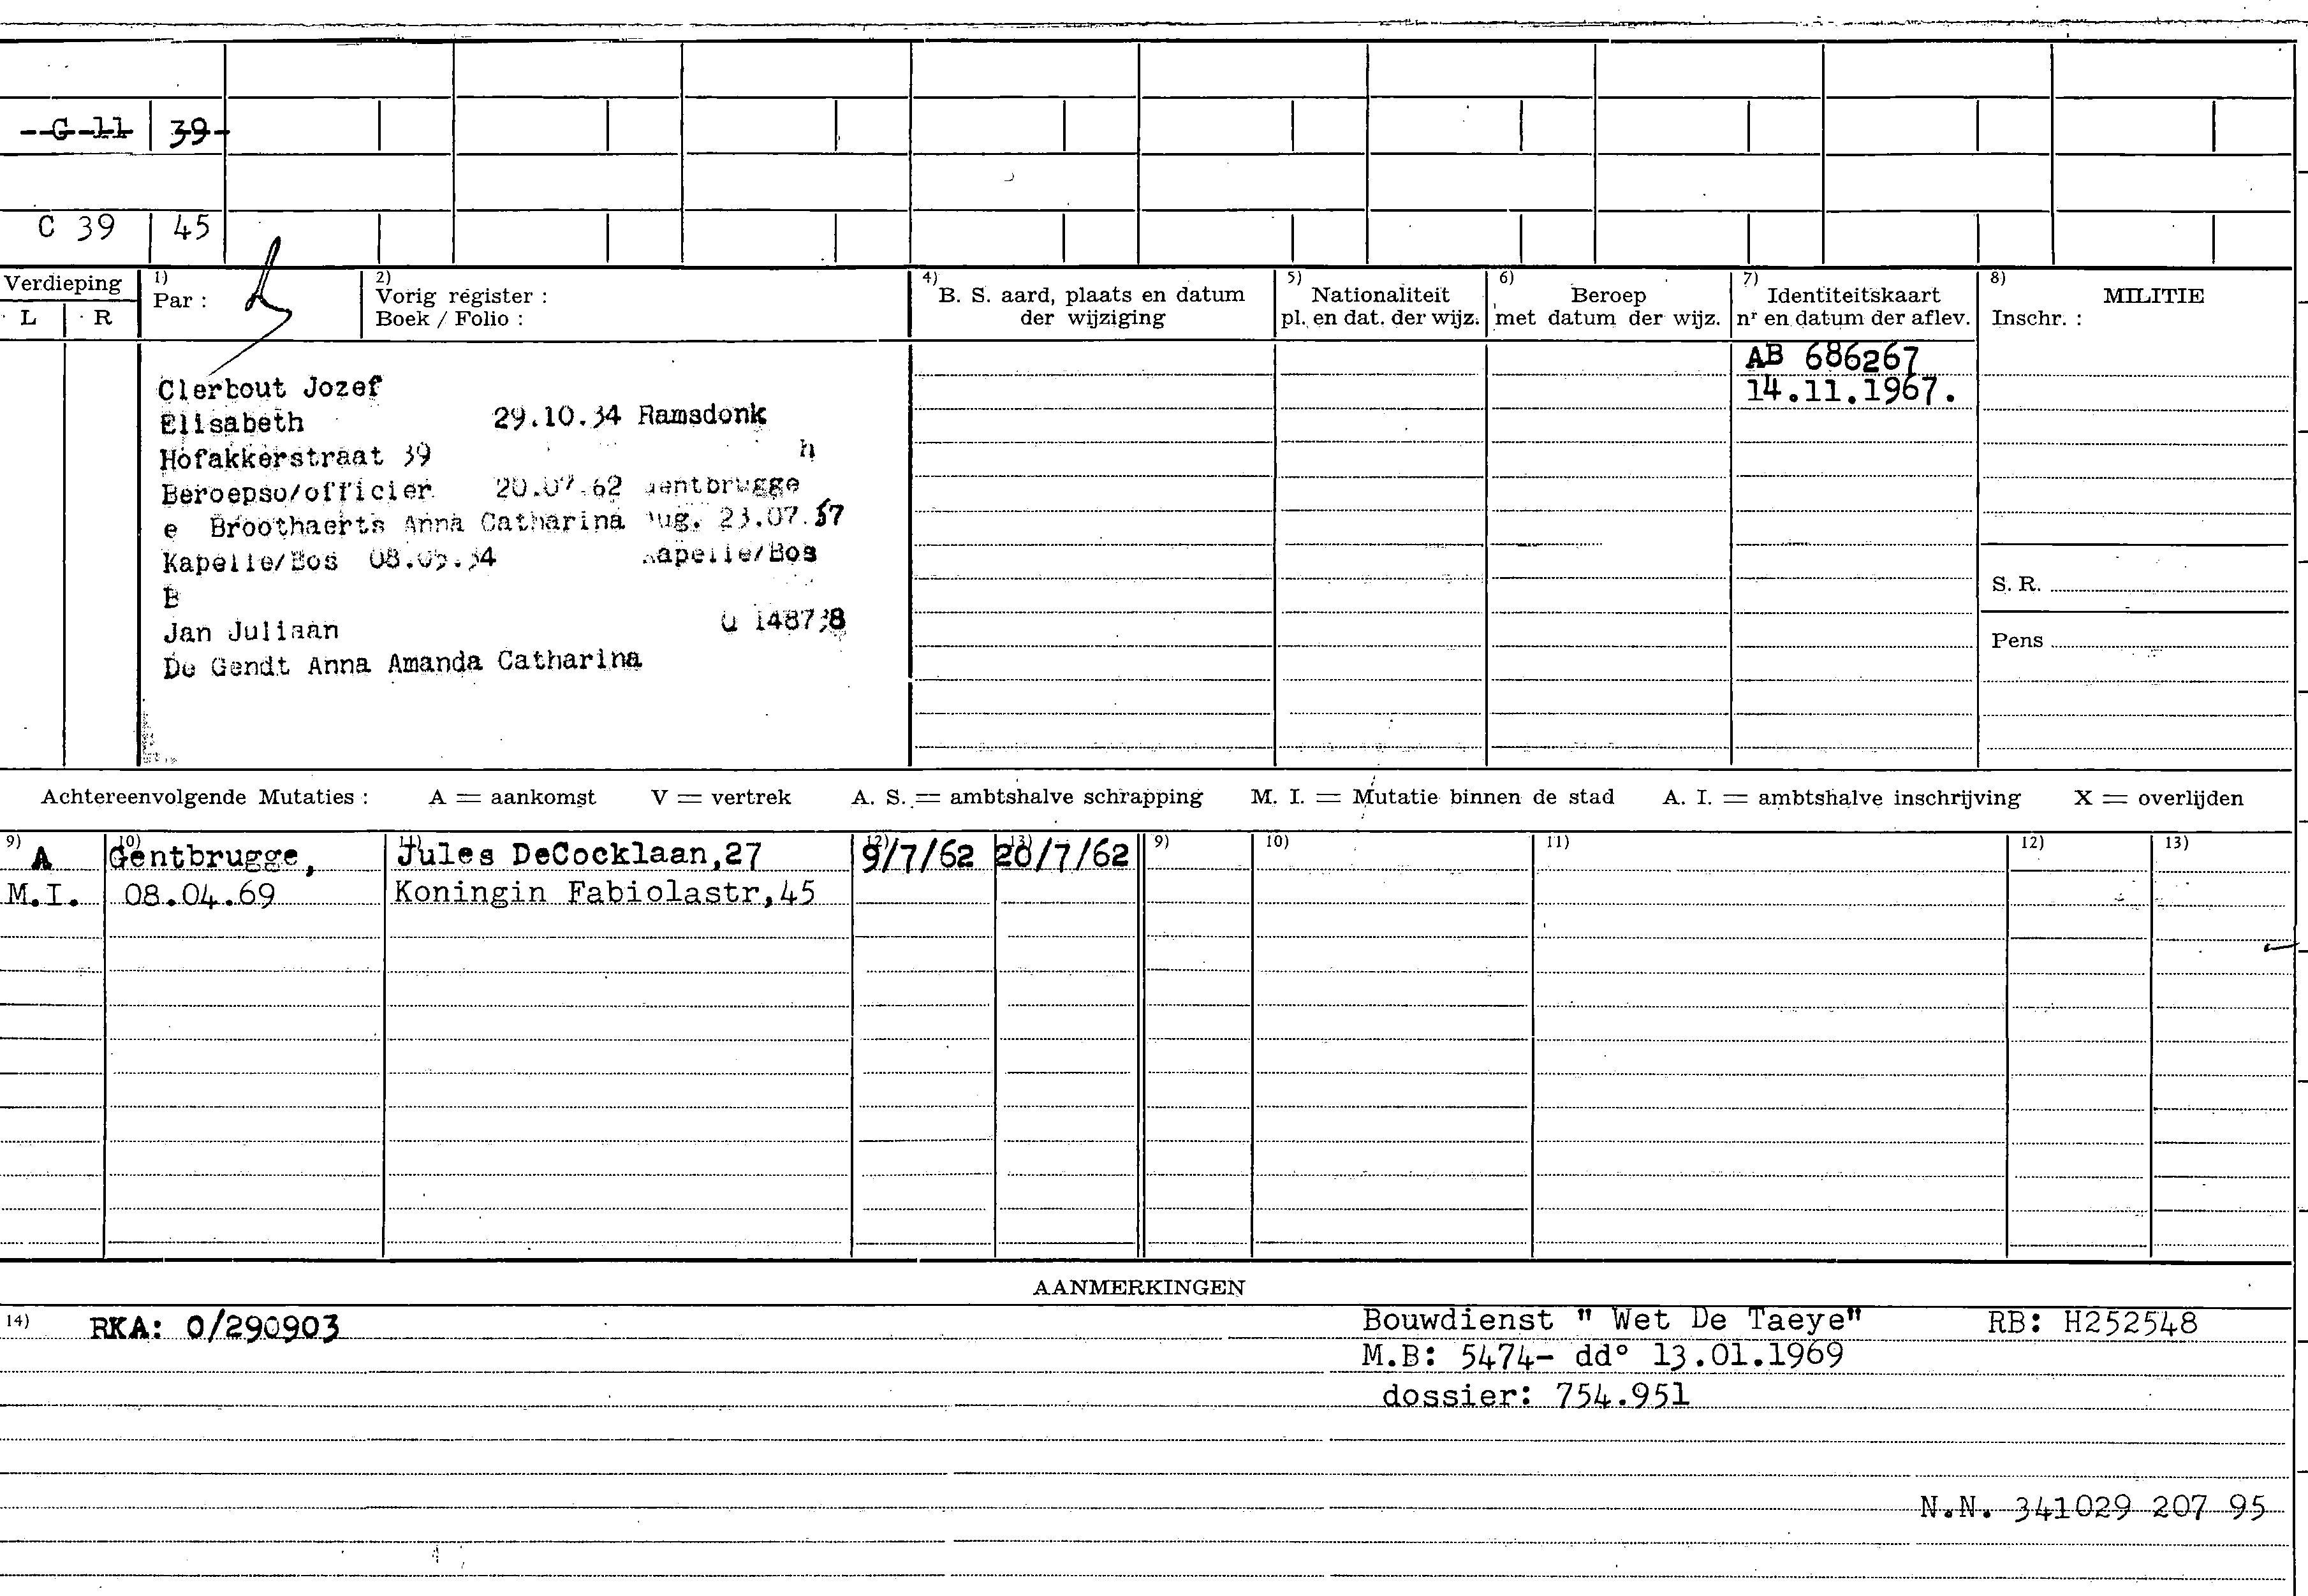 G 11 39
C 39 45
Verdieping
L R
1) Par :
2) Vorig register :
Boek / Folio :
4) B. S. aard, plaats en datum
der wijziging
5) Nationaliteit
pl. en dat. der wijz.
6) Beroep
met datum der wijz.
7) Identiteitskaart
nr en datum der aflev.
8) MILITIE
Inschr. :
AB 686267
14.11.1967.
Clerbout Jozef
Elisabeth 29.10.34 Ramsdonk
Hofakkerstraat 39 h
Beroepso/officier 20.07.62 Gentbrugge
e Broothaerts Anna Catharina Aug. 23.07.57
Kapelle/Bos Kapelle/Bos
B
Jan Juliaan
De Gendt Anna Amanda Catharina
S. R.
Pens
Achtereenvolgende Mutaties : A = aankomst V = vertrek A. S. = ambtshalve schrapping M. I. = Mutatie binnen de stad A. I. = ambtshalve inschrijving X = overlijden
9) 10) 11) 12) 13) 9) 10) 11) 12) 13)
A Gentbrugge, Jules DeCocklaan,27 9/7/62 20/7/62
M.I. 08.04.69 Koningin Fabiolastr,45
AANMERKINGEN
14) RKA: 0/290903 Bouwdienst " Wet De Taeye" RB: H252548
M.B: 5474- dd° 13.01.1969
dossier: 754.951
N.N. 341029 207 95